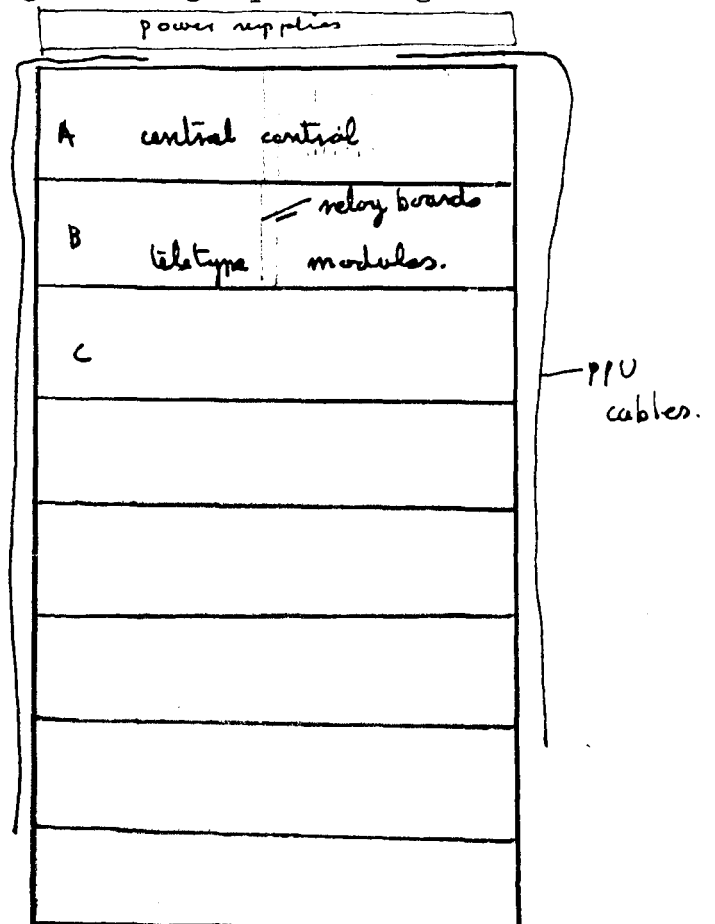 power supplies
A central control
relay boards
B teletype modules.
C
PPU
cables.